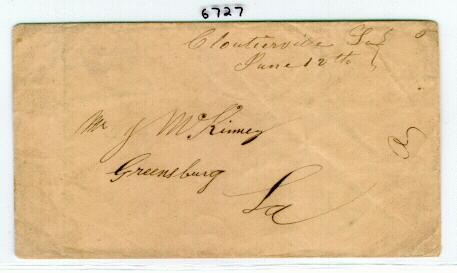 6727
Cloutierville La
June 12th
Mr J McKinney
Greensburg
La